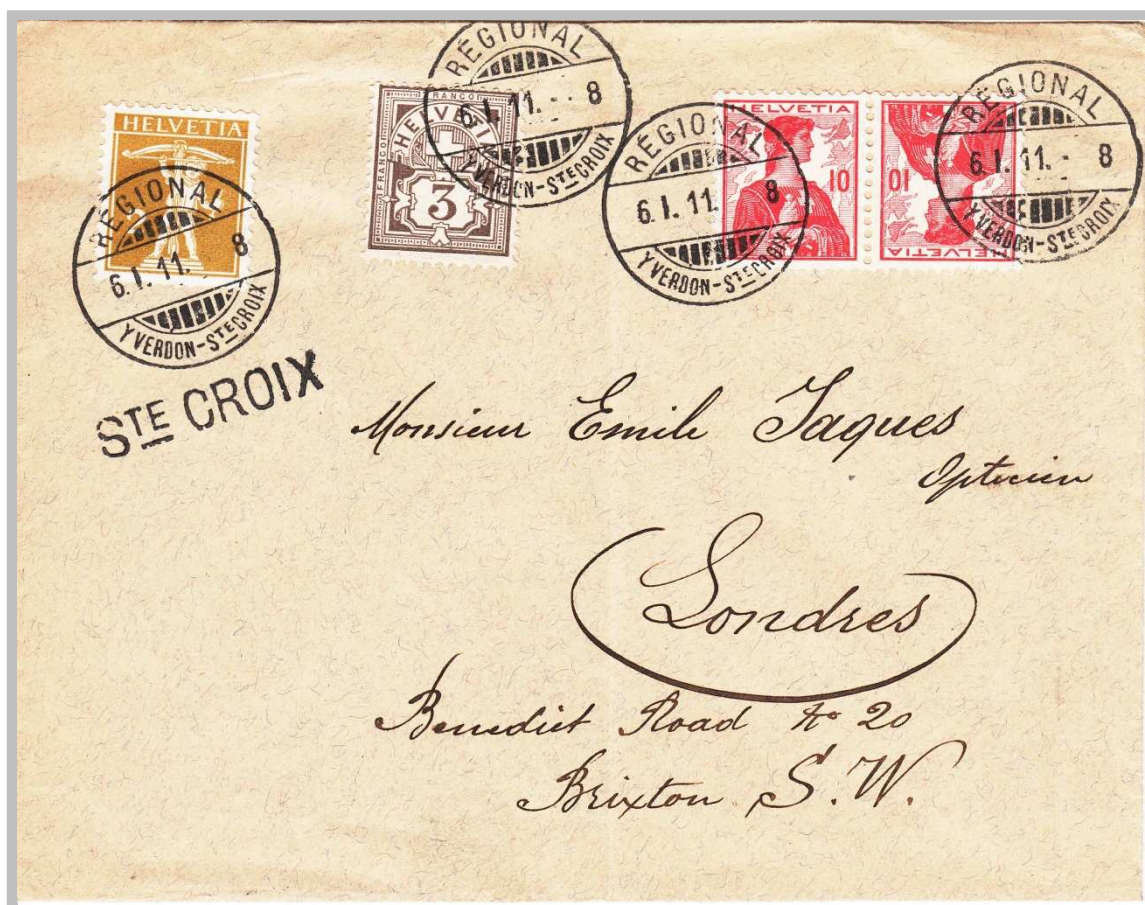 HELVETIA
RÉGIONAL
6.I.11. 8
YVERDON-STE CROIX
FRANCO
FRANCO
HELVETIA
3
RÉGIONAL
6.I.11.-- 8
YVERDON-STE CROIX
HELVETIA
10
RÉGIONAL
6.I.11. 8
YVERDON-STE CROIX
HELVETIA
10
RÉGIONAL
6.I.11.- 8
YVERDON-STE CROIX
STE CROIX
Monsieur Emile Jaques
Opticien
Londres
Benedict Road No 20
Brixton S.W.